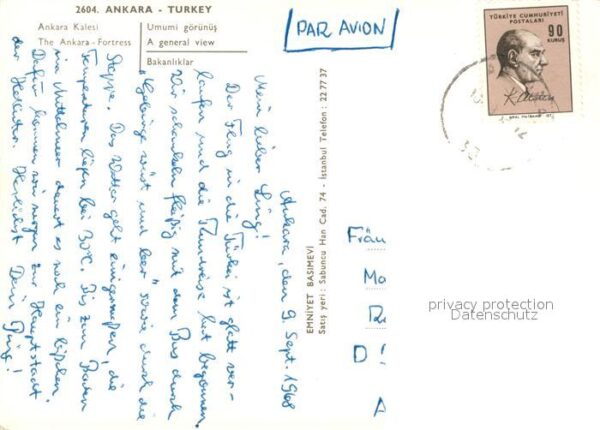 2604. ANKARA - TURKEY
Ankara Kalesi
The Ankara - Fortress
Umumi görünüş
A general view
Bakanlıklar
PAR AVION
TÜRKİYE CUMHURİYETİ
POSTALARI
90
KURUŞ
K. Atatürk
Ankara, den 9. Sept. 1968
Mein lieber
Der Flug in die Türkei ist glatt ver-
laufen und die Rundreise hat begonnen.
Wir schaukeln fleißig mit dem Bus durch
Gebirge "wüst und leer" sowie durch die
Steppe. Das Wetter geht einigermaßen, die
Temperaturen liegen bei 30°C. Bis zum Baden
im Mittelmeer dauert es noch ein bißchen.
Dafür kommen wir morgen zur Hauptstadt
der Hethiter. Herzlichst Dein
EMNİYET BASIMEVİ
Satış yeri: Sabuncu Han Cad. 74 - İstanbul Telefon: 22 77 37
Fräu
Ma
D
A
privacy protection
Datenschutz